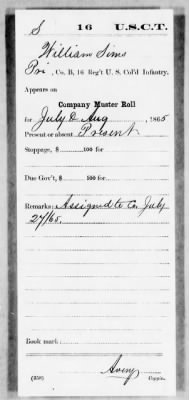 S 16 U.S.C.T.
William Sims
Pri, Co. B, 16 Reg't U. S. Col'd Infantry.
Appears on
Company Muster Roll
for July & Aug, 1865
Present or absent Present
Stoppage, $ 100 for
Due Gov't, $ 100 for
Remarks: Assigned to Co. July
27/65.
Book mark:
Avery
(358) Copyist.